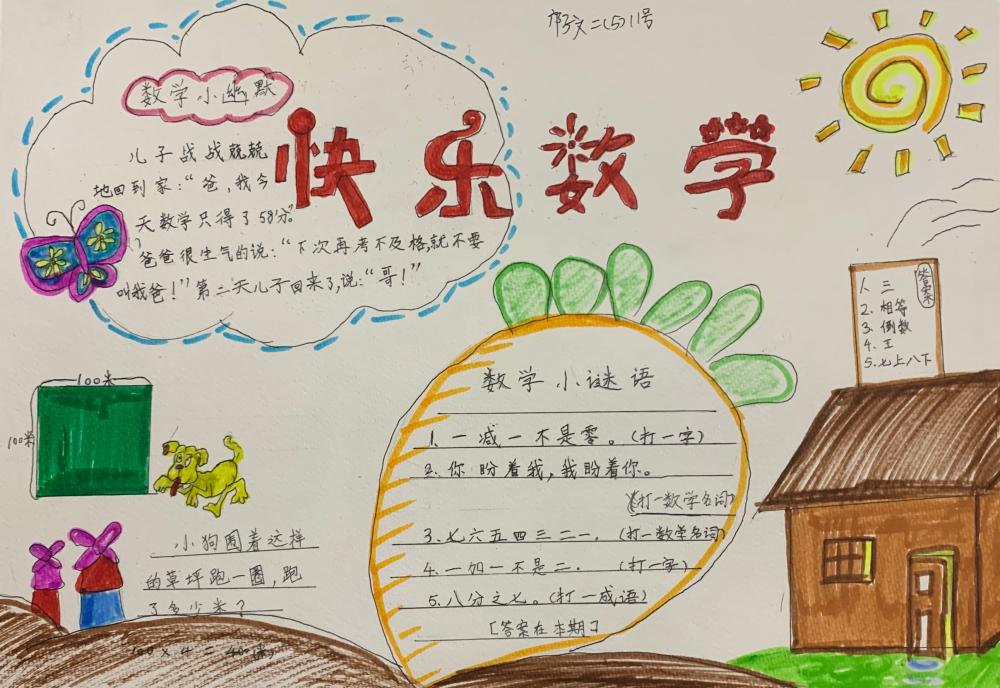 邝文二(5)11号
快乐数学
数学小幽默
儿子战战兢兢
地回到家：“爸，我今
天数学只得了58分”
爸爸很生气的说：“下次再考不及格，就不要
叫我爸！”第二天儿子回来了，说：“哥！”
答案
1. 三
2. 相等
3. 倒数
4. 王
5. 七上八下
数学小谜语
1. 一减一不是零。(打一字)
2. 你盼着我，我盼着你。
(打一数学名词)
3. 七六五四三二一. (打一数学名词)
4. 一加一不是二. (打一字)
5. 八分之七。(打一成语)
[答案在本期]
100米
100米
小狗围着这样
的草坪跑一圈，跑
了多少米？
100×4=400(米)